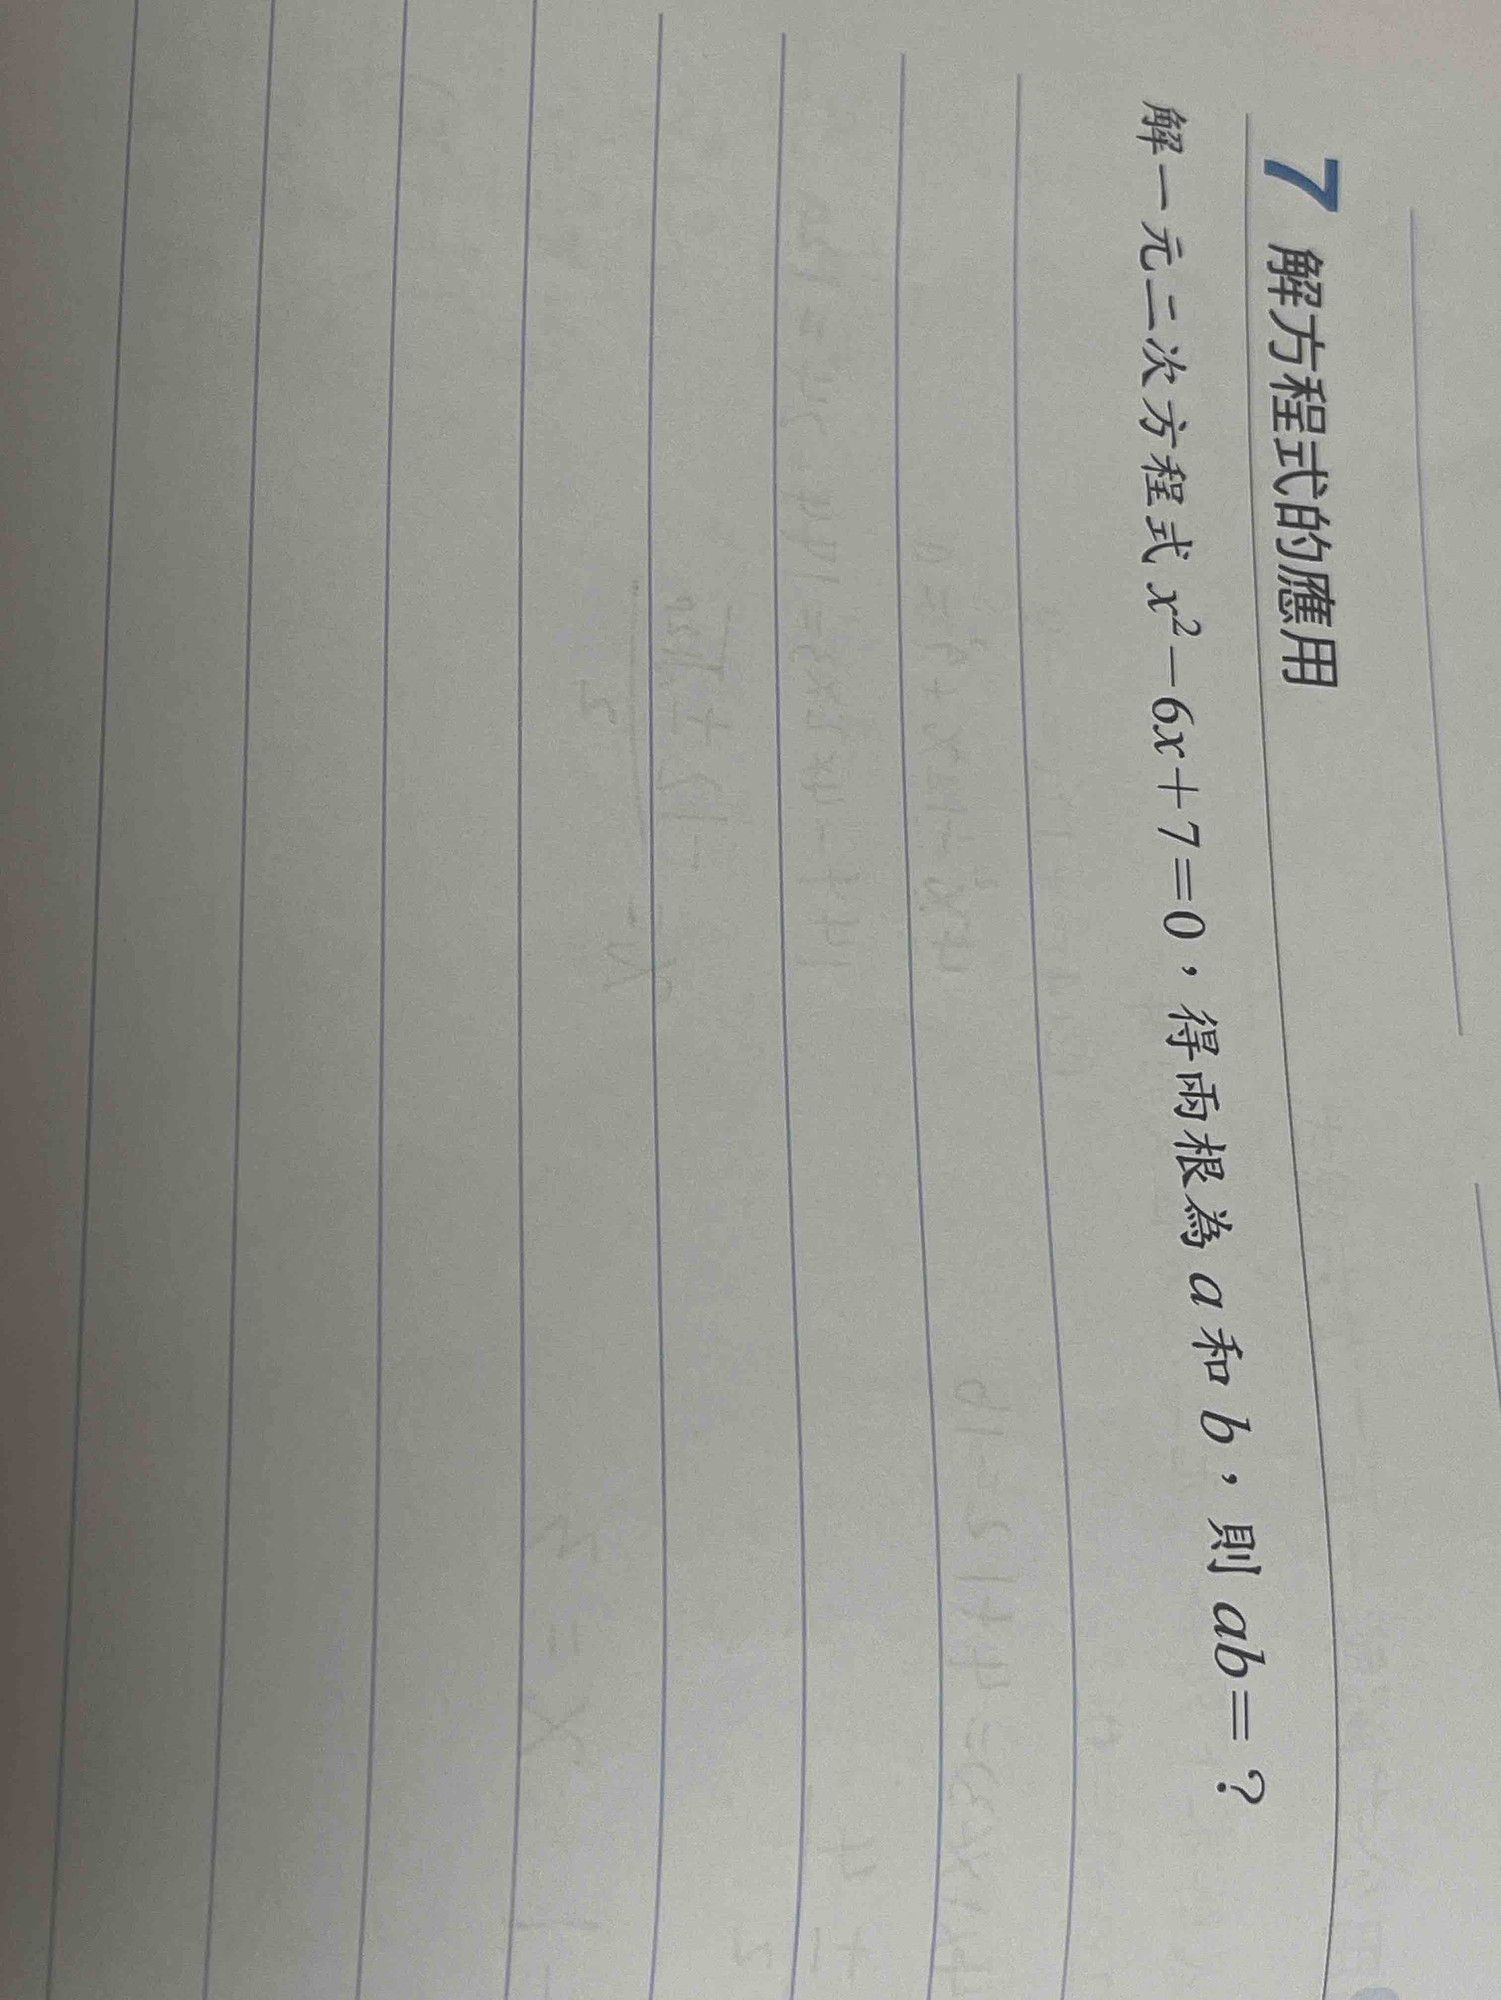 7 解方程式的應用
解一元二次方程式 x²-6x+7=0,得兩根為 a 和 b,則 ab=?